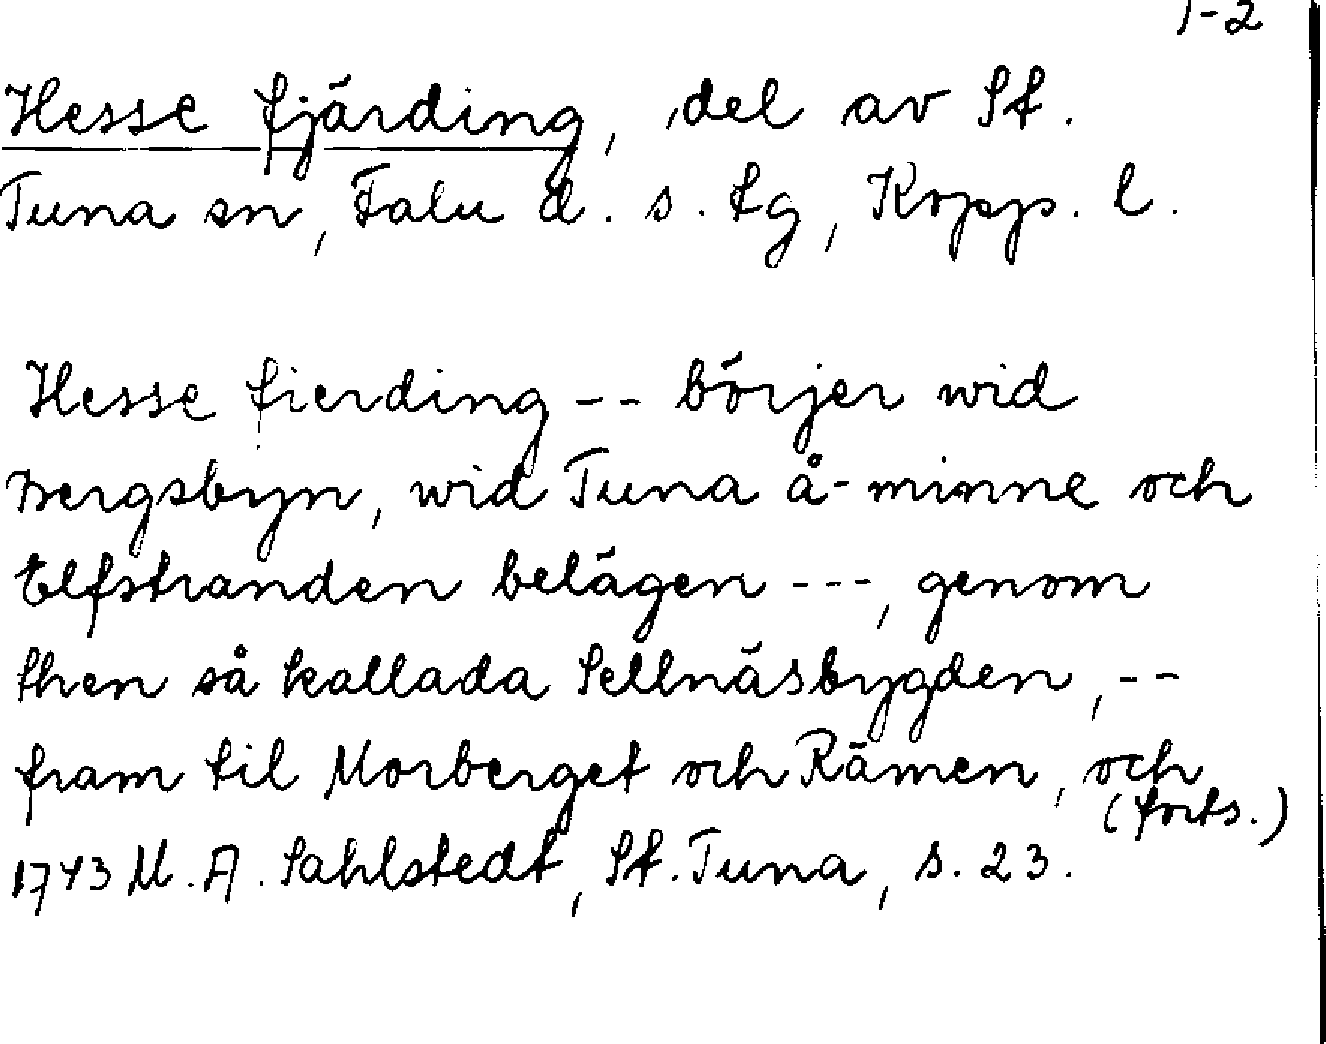 1-2
Hesse fjärding, del av St.
Tuna sn, Falu d. s. tg, Kopp. l.
Hesse fierding -- börjer wid
Bergsbyn, wid Tuna å-minne och
Elfstranden belägen ---, genom
then så kallada Sellnäsbygden, --
fram til Morberget och Rämen, och
(forts.)
1743 M. A. Sahlstedt, St. Tuna, s. 23.